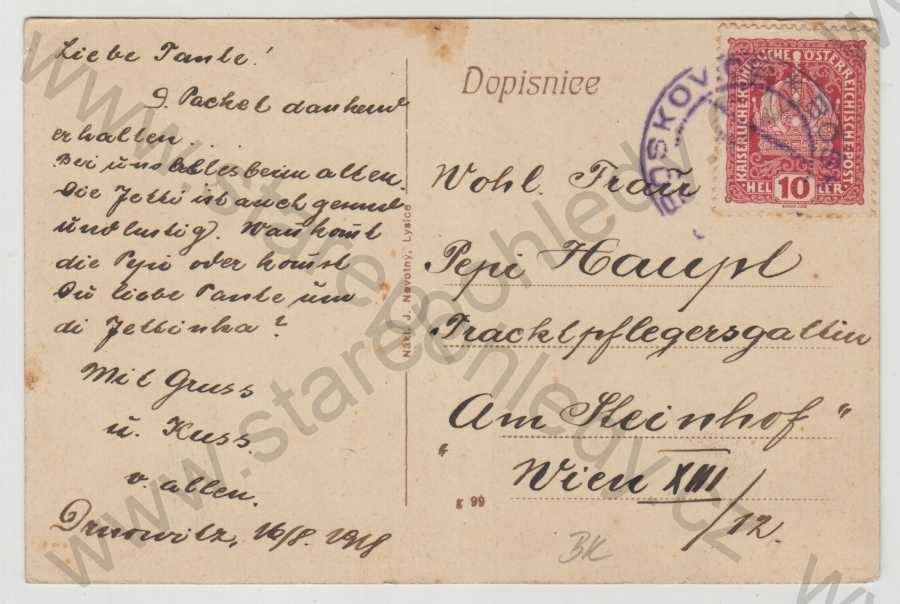 Liebe Tante!
9 Packet dankend
erhalten...
Bei uns alles beim alten.
Die Jetti ist auch gesund
und lustig. Wan komt
die Pepi oder komst
Du liebe Tante um
di Jettinka?
Mit Gruss
u. Kuss
v. allen.
Drnowitz, 16/8. 1918
Nákl. J. Novotný, Lysice
Dopisnice
KAISERLICHE KÖNIGLICHE ÖSTERREICHISCHE POST
HELLER
10
BOSKOVICE
BOSK
Wohl. Frau
Pepi Haupl
Tracktpflegersgattin
"Am Steinhof"
Wien XIII
/12.
g 99
BK
www.starepohledy.cz